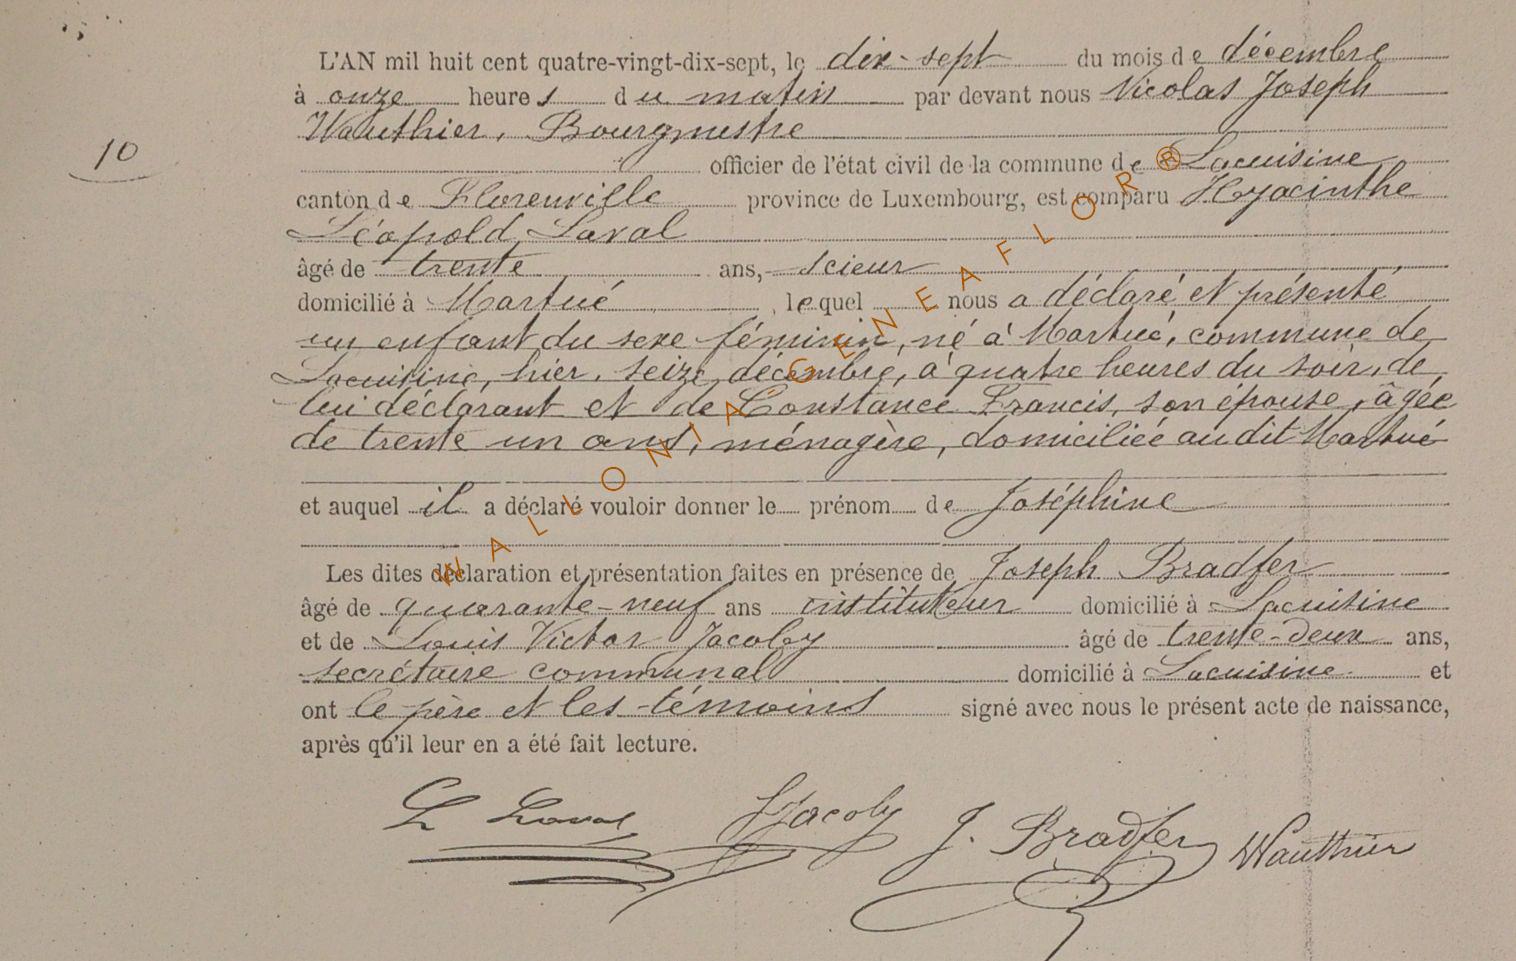 L'AN mil huit cent quatre-vingt-dix-sept, le dix-sept du mois de décembre
à onze heures du matin par devant nous Nicolas Joseph
Wauthier, Bourgmestre
10
officier de l'état civil de la commune de Lacuisine
canton de Florenville province de Luxembourg, est comparu Hyacinthe
Léopold Laval
âgé de trente ans, scieur
domicilié à Martué, lequel nous a déclaré et présenté
un enfant du sexe féminin, né à Martué, commune de
Lacuisine, hier, seize décembre, à quatre heures du soir, de
lui déclarant et de Constance Francis, son épouse, âgée
de trente un ans, ménagère, domiciliée au dit Martué
et auquel il a déclaré vouloir donner le prénom de Joséphine
Les dites déclaration et présentation faites en présence de Joseph Bradfer
âgé de quarante-neuf ans instituteur domicilié à Lacuisine
et de Louis Victor Jacoby âgé de trente-deux ans,
secrétaire communal domicilié à Lacuisine et
ont le père et les témoins signé avec nous le présent acte de naissance,
après qu'il leur en a été fait lecture.
L Laval Jacoby J. Bradfer Wauthier
WALLONIA-GENEAFLOR®